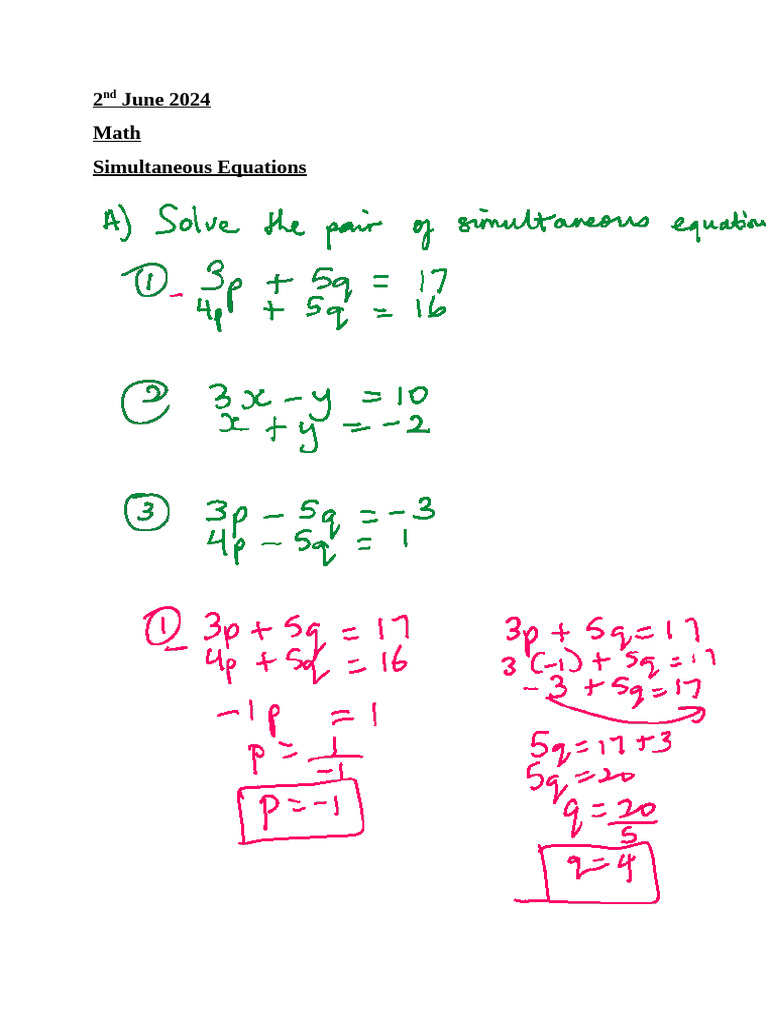 2nd June 2024
Math
Simultaneous Equations
A) Solve the pair of simultaneous equation
① - 3p + 5q = 17
4p + 5q = 16
② 3x - y = 10
x + y = -2
③ 3p - 5q = -3
4p - 5q = 1
① 3p + 5q = 17
- 4p + 5q = 16
-1p = 1
p = 1/-1
p = -1
3p + 5q = 17
3(-1) + 5q = 17
-3 + 5q = 17
5q = 17 + 3
5q = 20
q = 20/5
q = 4